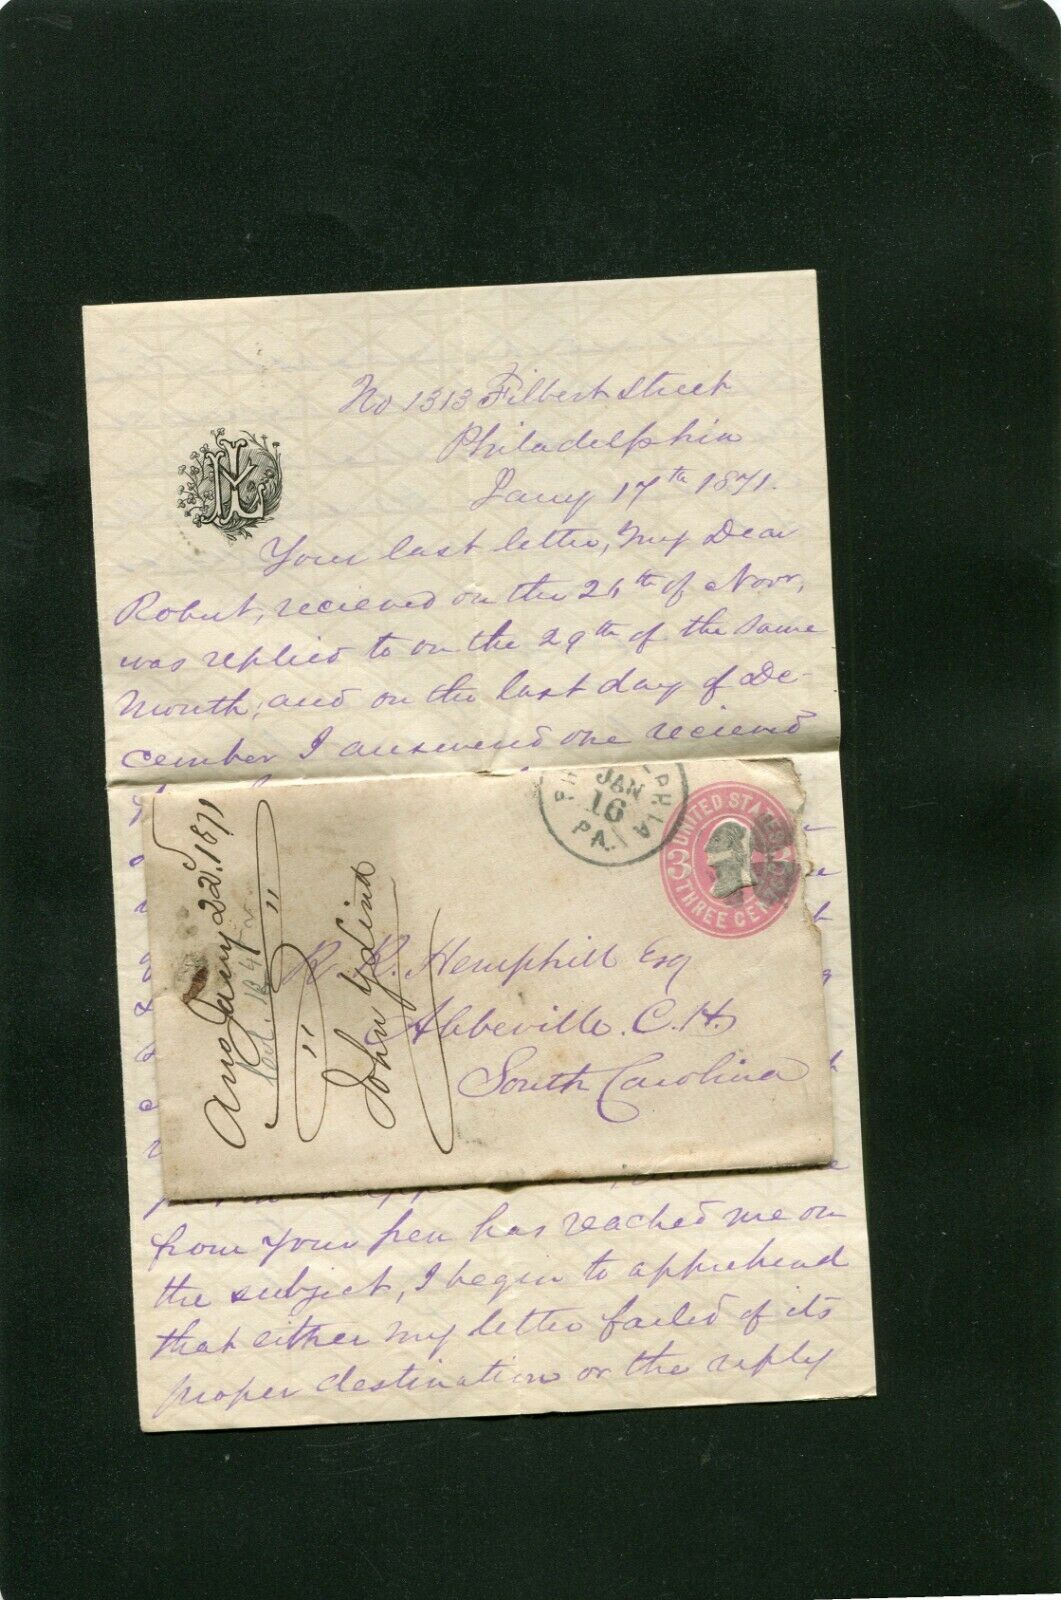 No 1313 Filbert Street
Philadelphia
Jany 17th 1871.
Your last letter, My Dear
Robert, recieved on the 26th of Novr,
was replied to on the 29th of the same
Month, and on the last day of De-
cember I answered one recieved
PHILADELPHIA
JAN
16
PA.
UNITED STATES
3
THREE CENTS
R. R. Hemphill Esq
Abbeville. C. H.
South Carolina
Ans Jany 22. 1871
John
from your pen has reached me on
the subject, I begin to apprehend
that either my letter failed of its
proper destination or the reply